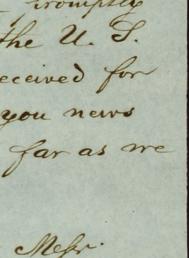 promptly
the U. S.
eceived for
you news
far as we
Messr.